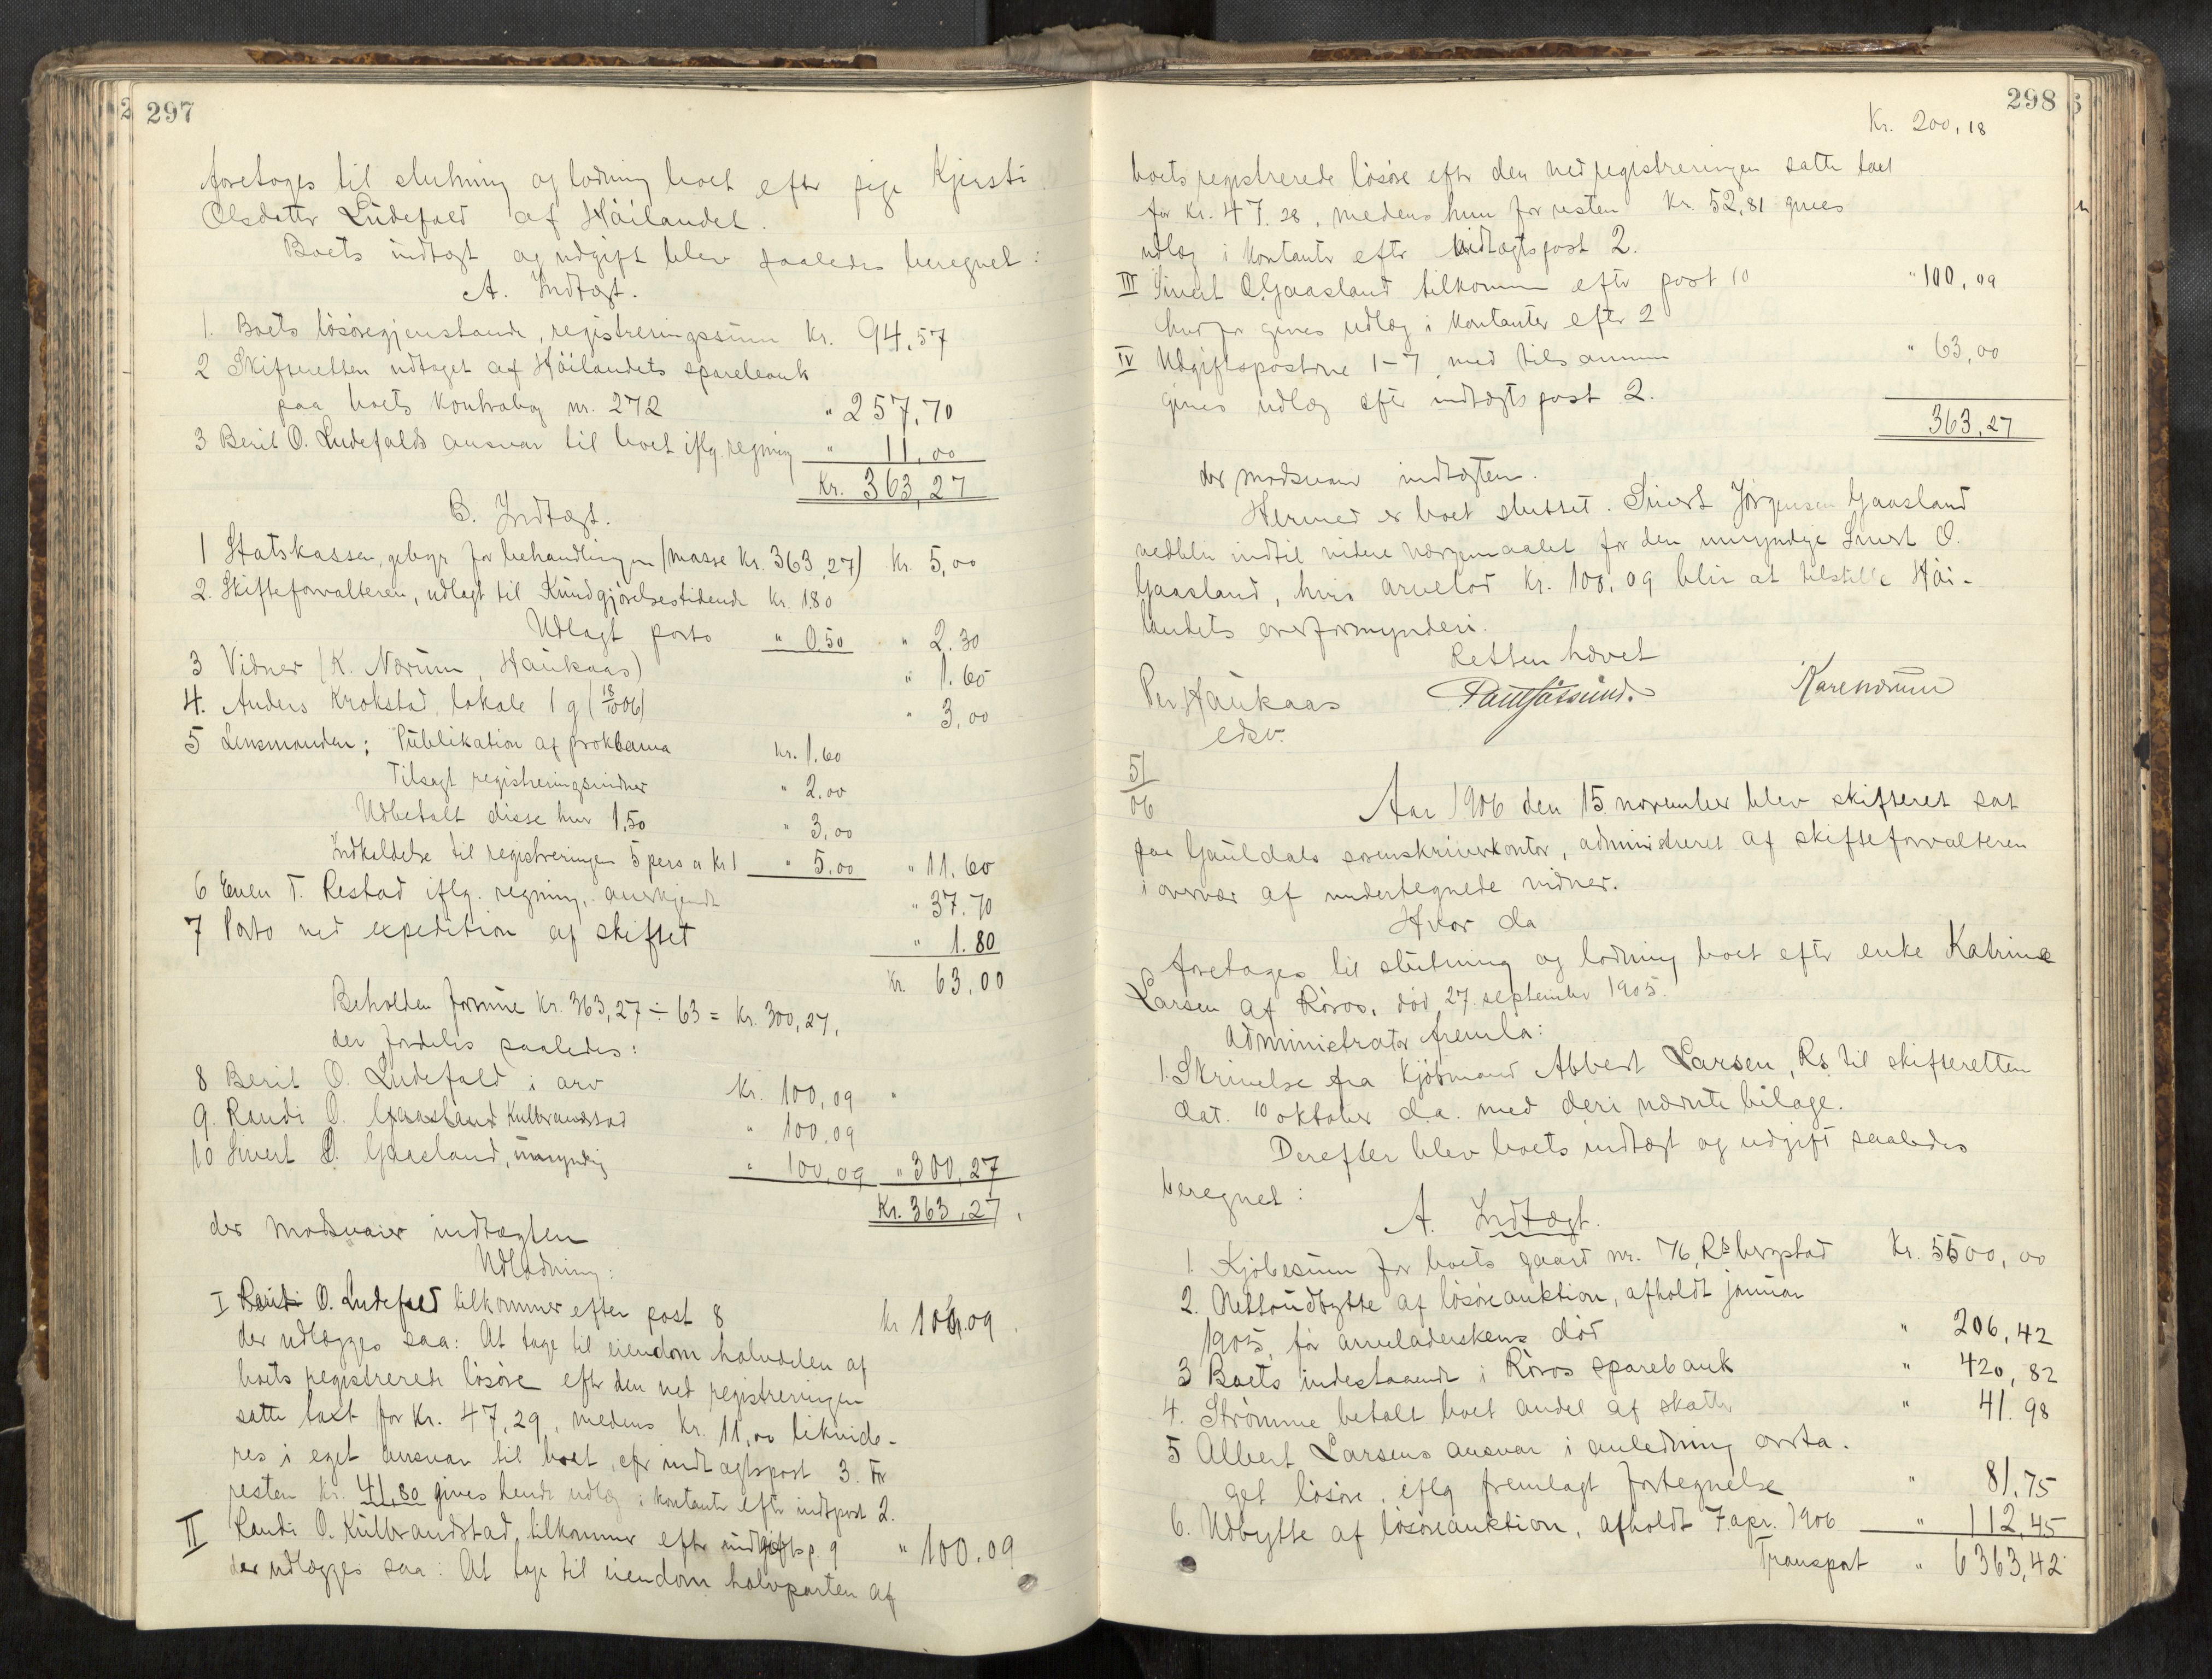 297
foretoges til slutning og lodning boet efter pige Kjersti
Olsdatter Ludefald af Höilandet.
Boets indtægt og udgift blev saaledes beregnet:
A. Indtægt.
1. Boets lösöregjenstande, registreringssum Kr. 94,57
2 Skifteretten udtaget af Höilandets sparebank
paa boets Kontrabog nr. 272 " 257,70
3 Berit O. Ludefalds ansvar til boet iflg. regning " 11,00
Kr. 363,27
B. Indtægt.
1 Statskassen, gebyr for behandlingen (masse Kr. 363,27) Kr. 5,00
2. Skifteforvalteren, udlagt til Kundgjörelsestidende Kr. 1.80
Udlagt porto " 0.50 " 2.30
3 Vidner (K. Nærum, Haukaas) " 1.60
4. Anders Krokstad, lokale 1 g (18/10 06) " 3,00
5 Lensmanden: Publikation af proklama Kr. 1.60
Tilsagt registreringsvidner " 2.00
Udbetalt disse hver 1,50 " 3,00
Indkaldelse til registreringen 5 pers a Kr 1 " 5.00 " 11.60
6 Even T. Restad iflg. regning, anerkjendt " 37.70
7 Porto ved expedition af skiftet " 1.80
Kr. 63,00
Beholden formue Kr. 363,27 ÷ 63 = Kr. 300,27,
der fordeles saaledes:
8 Berit O. Ludefald i arv Kr. 100,09 "
9. Randi O. Gaasland Kulbrandstad " 100,09
10 Sivert O. Gaasland, umyndig " 100,09 " 300,27
Kr. 363,27.
der modsvarer indtægten
Udlodning:
I Berit O. Ludefald tilkommer efter post 8 Kr 100.09.
der udlægges saa: At tage til eiendom halvdelen af
boets registrerede lösöre efter den ved registreringen
satte taxt for Kr. 47,29, medens Kr. 11,00 likvide-
res i eget ansvar til boet, efter indtægtspost 3. For
resten Kr. 41,80 gives hende udlæg i kontanter efter indtpost 2.
II Randi O. Kulbrandstad, tilkommer efter udgiftsp. 9 " 100.09
der udlægges saa: At tage til eiendom halvparten af
298
Kr. 200,18
boets registrerede lösöre efter den ved registreringen satte taxt
for Kr. 47.28, medens hun for resten Kr. 52,81 gives
udlæg i kontanter efter indtægtspost 2.
III Sivert O. Gaasland tilkommer efter post 10 " 100,09
hvorfor gives udlæg i kontanter efter 2
IV Udgiftsposterne 1-7, med tilsammen " 63,00
gives udlæg efter indtægtspost 2.
363,27
der modsvarer indtægten.
Hermed er boet sluttet. Sivert Jörgensen Gaasland
vedblir indtil videre værgemaalet for den umyndige Sivert O.
Gaasland, hvis arvelod Kr. 100,09 blir at tilstille Höi-
landets overformynderi.
Retten hævet
Per Haukaas Karenærum
edsv.
5/
06
Aar 1906 den 15 november blev skifteret sat
paa Gauldals sorenskriverkontor, administreret af skifteforvalteren
i overvær af undertegnede vidner.
Hvor da
foretages til slutning og lodning boet efter enke Katrine
Larsen af Röros, död 27. september 1905.
Administrator fremla:
1. Skrivelse fra Kjöbmand Albert Larsen, Rs. til skifteretten
dat. 10 oktober d.a. med deri nævnte bilage.
Derefter blev boets indtægt og udgift saaledes
beregnet:
A. Indtægt.
1. Kjöbesum for boets gaard nr. 76, Rs bergstad Kr. 5500,00
2. Nettoudbytte af lösöreauktion, afholdt januar
1905, för arveladerskens död " 206,42
3 Boets indestaaende i Röros sparebank " 420,82
4. Strömme betalt boet andel af skatter " 41.98
5 Albert Larsens ansvar i anledning overta-
get lösöre, iflg fremlagt fortegnelse " 81,75
6. Udbytte af lösöreauktion, afholdt 7 apr. 1906 " 112,45
Transport " 6363,42